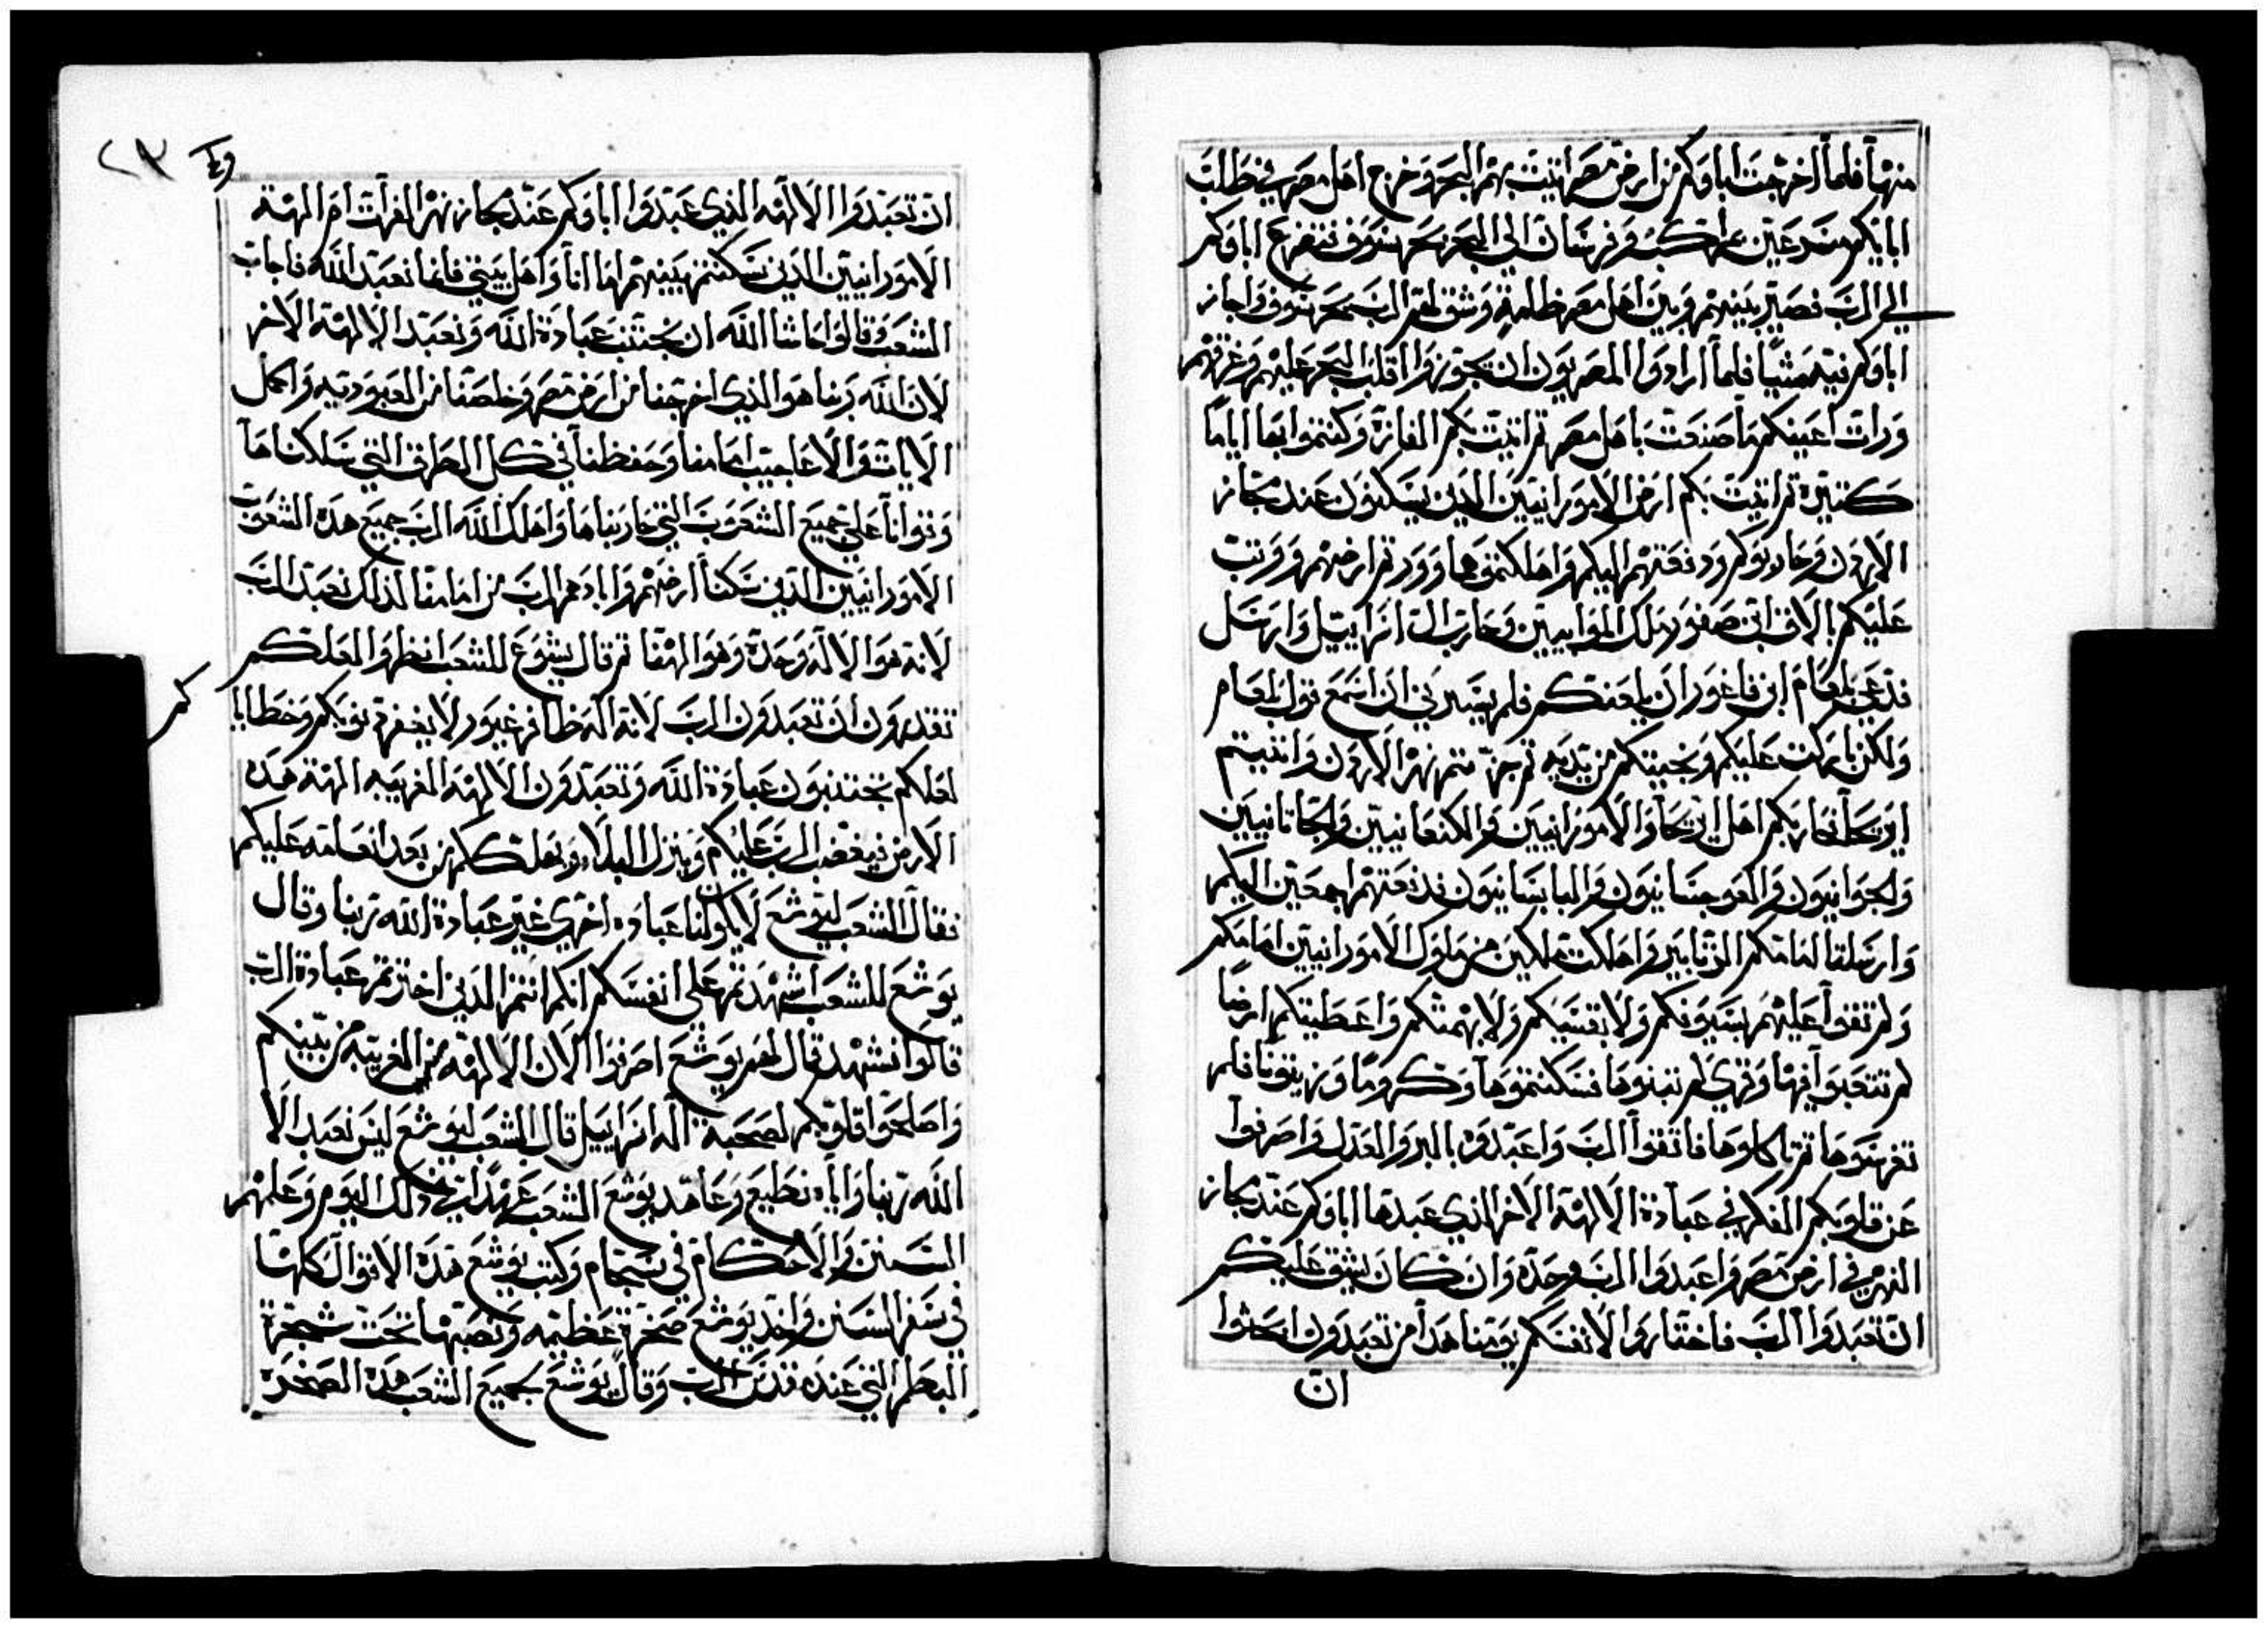 منها فلما اخرجت اباوكم من ارض مصر اتيت بهم البحر وخرج اهل مصر في طلب
ابايكم مسرعين بمراكب وفرسان الي البحر بحر سوف فتضرع اباوكم
الي الرب فصير بينهم وبين اهل مصر ظلمة وشق لهم الرب بحر سوف واجاز
اباوكم فيه مشيا فلما ارادوا المصريون ان يجوزوا اقلب البحر عليهم وغرقهم
ورات اعينكم ما صنعت باهل مصر ثم اتيت بكم المفازة وكنتم بها اياما
كثيرة ثم اتيت بكم ارض الامورانيين الذين يسكنون عند مجاز
الاردن وحاربوكم ودفعتهم اليكم واهلكتموهم وورثتم ارضهم ووثب
عليكم بالاق ابن صفور ملك الموابيين وحارب ال اسراييل وارسل
فدعي بلعام ابن فاغور ان يلعنكم فلم يسرني ان اسمع قول بلعام
ولكن باركت عليكم ونجيتكم من يديه ثم جزتم نهر الاردن واتيتم
اريحا فحاربكم اهل اريحا والامورانيين والكنعانيين والحاتانيين
والحوانيون والغوجسانيون واليابسانيون فدفعتهم اجمعين اليكم
وارسلت امامكم الزنابير واهلكت ملكين من ملوك الامورانيين امامكم
ولم تقووا عليهم بسيوفكم ولا بقسيكم ولا بهمتكم واعطيتكم ارضا
لم تتعبوا فيها وقري لم تبنوها فسكنتموها وكروما وزيتونا فلم
تغرسوها ثم تاكلوها فاتقوا الرب واعبدوه بالبر والعدل واصرفوا
عن قلوبكم الفكر في عبادة الالهة الاخر الذي عبدها اباوكم عند مجاز
النهر في ارض مصر واعبدوا الرب وحده وان كان يشق عليكم
ان تعبدوا الرب فاختاروا لانفسكم يومنا هذا من تعبدون اتحبوا
ان
ان تعبدوا الالهه الذي عبدوا اباوكم عند مجاز نهر الفرات ام الهة
الامورانيين الذين سكنتم بينهم اما انا واهل بيتي فانما نعبد الله فاجاب
الشعب وقالوا حاشا لله ان نجتنب عبادة الله ونعبد الالهة الاخر
لان الله ربنا هو الذي اخرجنا من ارض مصر وخلصنا من العبودتيه واكمل
الايات والاعاجيب امامنا وحفظنا في كل الطرق التي سلكناها
وقوانا علي جميع الشعوب التي حاربناها واهلك الله الرب جميع هذه الشعوب
الامورانيين الذين سكنا ارضهم وابادهم الرب من امامنا لذلك نعبد الرب
لانه هو الاله وحده وهو الهنا ثم قال يشوع للشعب انظروا لعلكم
تقدرون ان تعبدون الرب لانه اله طاهر غيور لا يغفر ذنوبكم وخطايا
كم
لعلكم تجتنبون عبادة الله وتعبدون الالهة الغريبه الهة هذه
الارض فيغضب الرب عليكم وينزل البلاء ويهلككم من بعد انعامه عليكم
فقال الشعب ليوشع لا يكون لنا عباده اخري غير عبادة الله ربنا وقال
يوشع للشعب اشهدتم علي انفسكم انكم انتم الذين اخترتم عبادة الرب
قالوا نشهد قال لهم يوشع اصرفوا الان الالهة الغريبه من بينكم
واصلحوا قلوبكم لصحبة اله اسراييل قال الشعب ليوشع ليس نعبد الا
الله ربنا واياه نطيع وعاهد يوشع الشعب عهدا في ذلك اليوم وعلمهم
السنن والاحكام في سجام وكتب يوشع هذه الاقوال كلها
في سفر السنن واخذ يوشع صخرة عظيمه ونصبها تحت شجرة
البطم التي عند قدس الرب وقال يوشع لجميع الشعب هذه الصخره